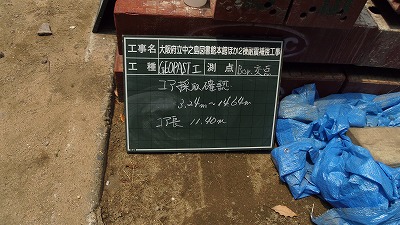 工事名 大阪府立中之島図書館本館ほか2棟耐震補強工事
工種 GEOPAST工 測点 Bor.交点
コア採取確認
3.24m～14.64m
コア長 11.40m